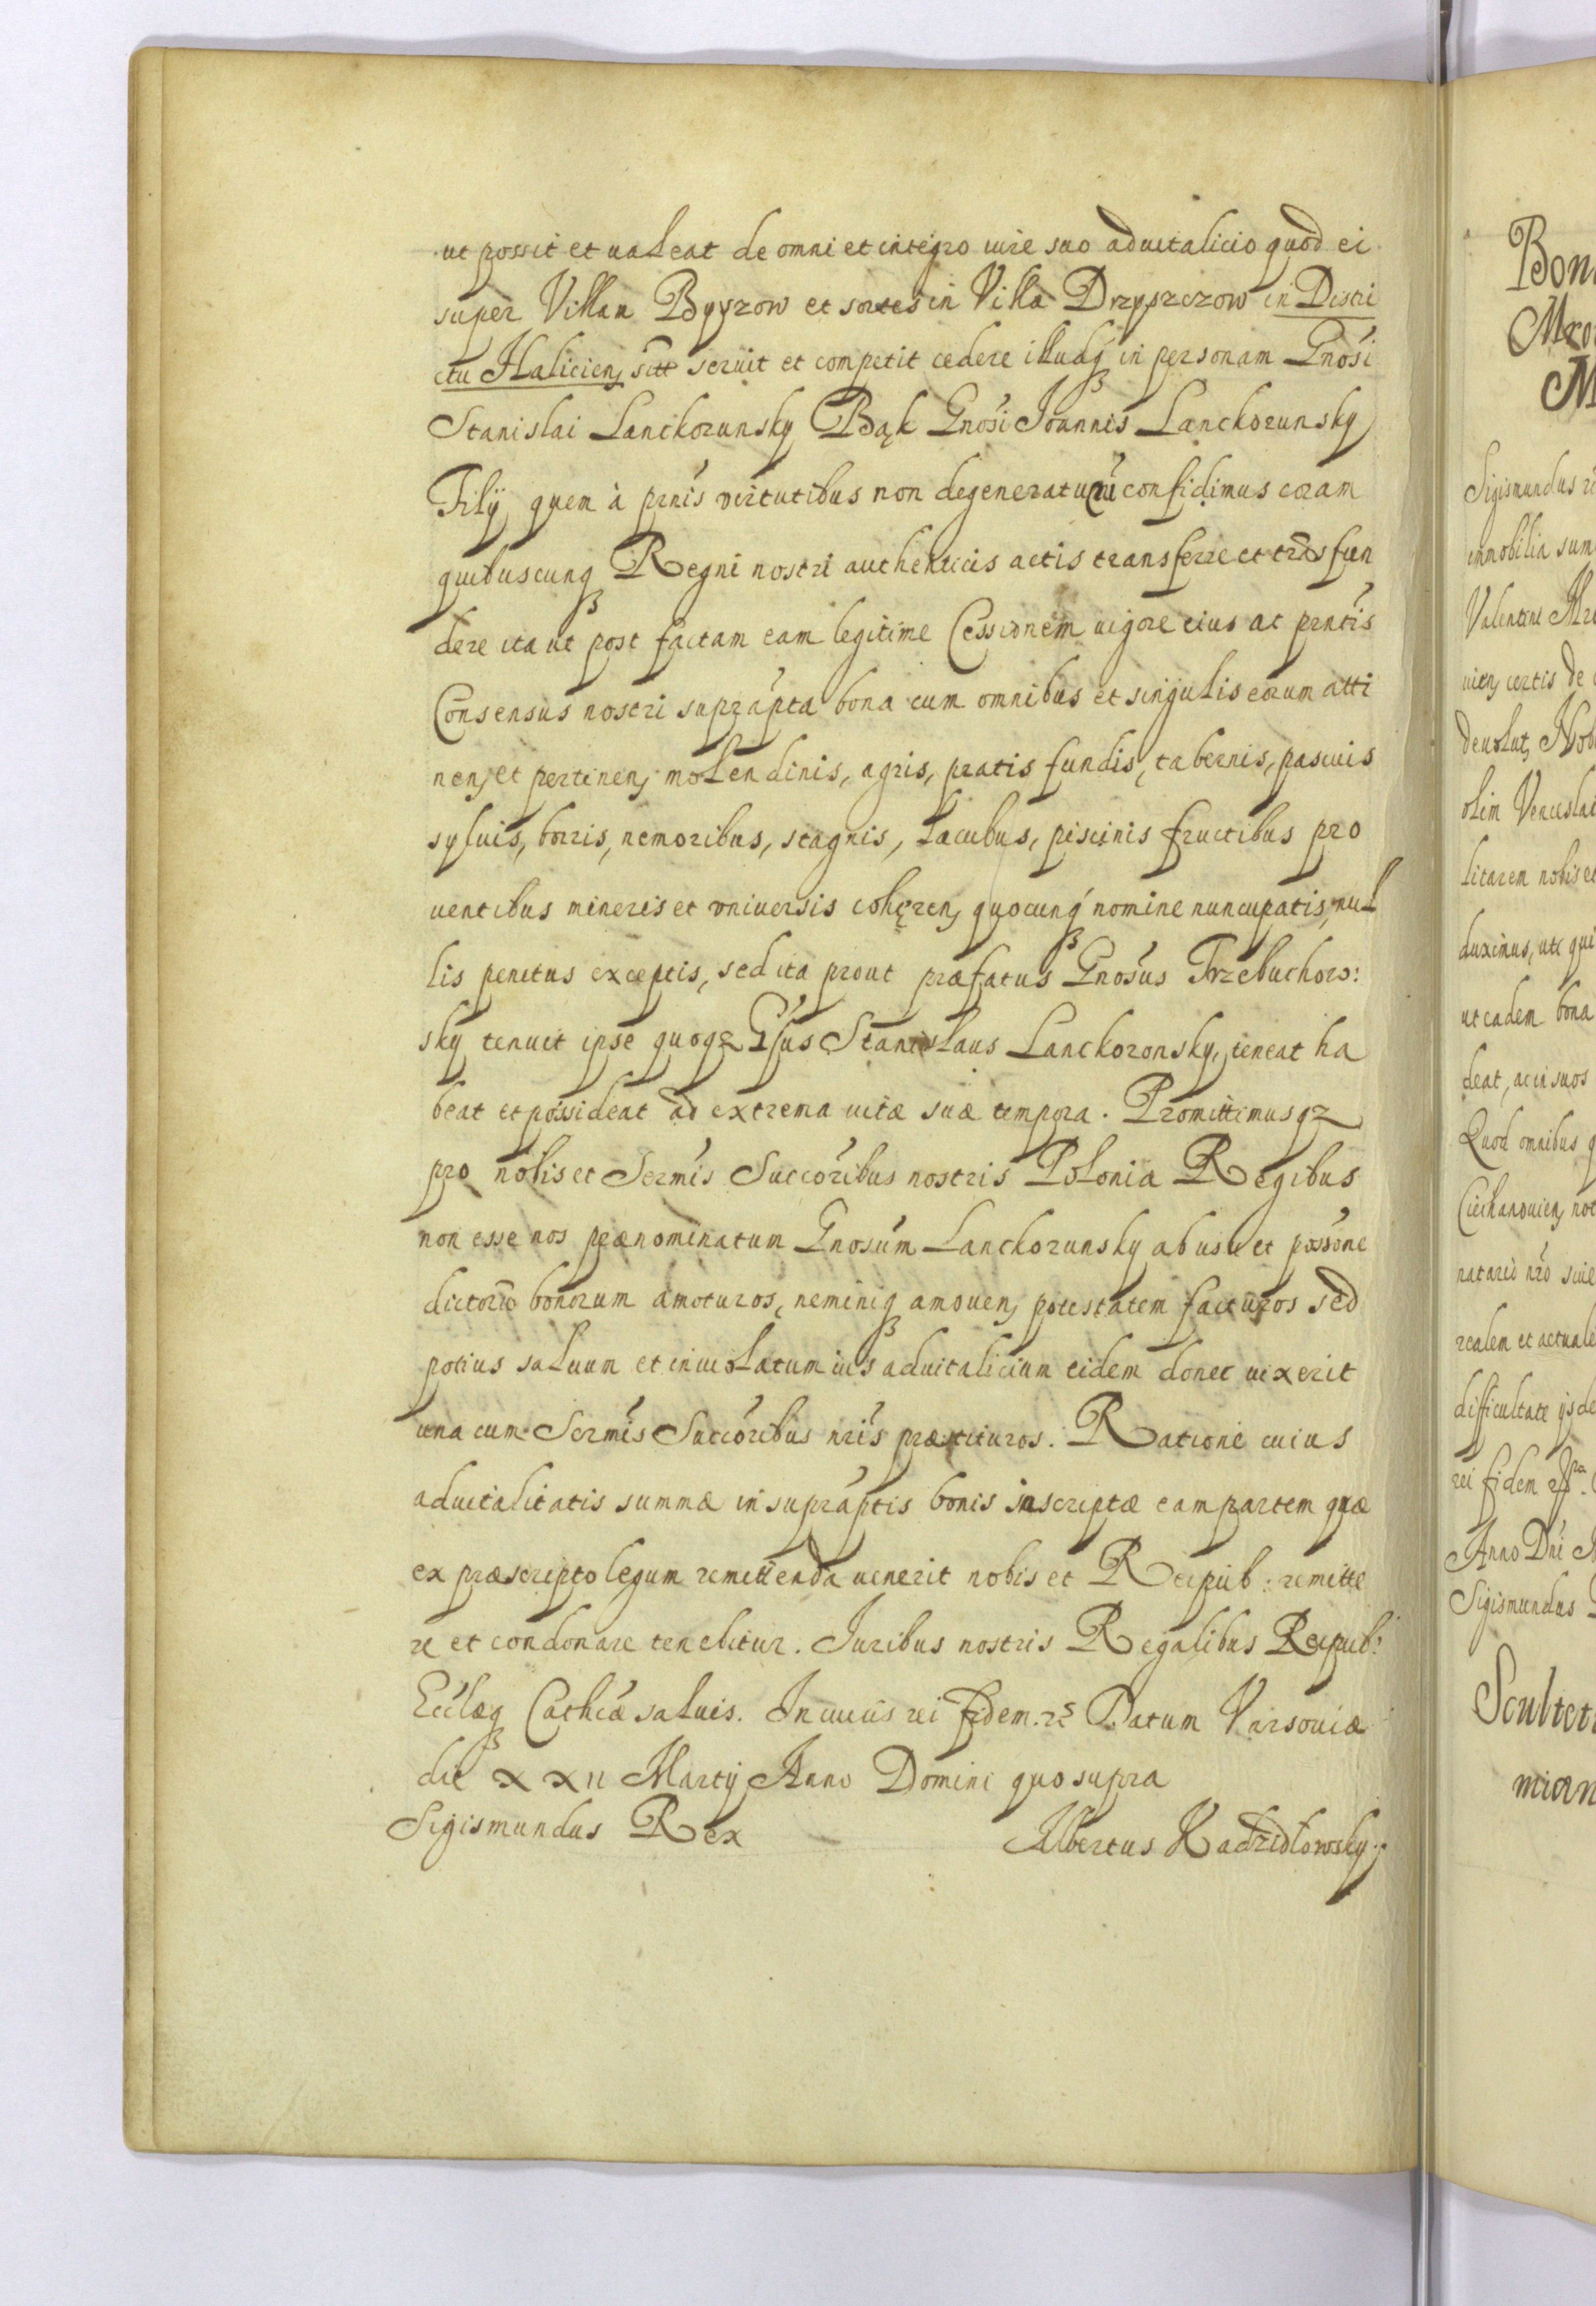 ut possit et ualeat de omni et integro iure suo aduitalicio quod ei
super Villam Byyzow et sortes in Villa Drzyszczow in Distri
ctu Halicien, sitt seruit et competit cedere illudq in personam Gnosi
Stanislai Lanckorunsky Bąk Gnosi Ioannis Lanckorunsky
Filij quem à prnis virtutibus non degeneraturū confidimus coram
quibuscunq Regni nostri authenticis actis transferre et trāsfun
dere ita ut post factam eam legitime Cessionem uigore eius ac prntis
Consensus nostri suprapta bona cum omnibus et singulis eorum atti
nen, et pertinen, molendinis, agris, pratis fundis, tabernis, pascuis
syluis, borris, nemoribus, stagnis, lacubus, piscinis fructibus pro
uentibus mineris et vniuersis cohęren, quocunq nomine nuncupatis, nul
lis penitus exceptis, sed ita prout præfatus Gnosus Trzebuchow:
sky tenuit ipse quoqz Gsus Stanislaus Lanckoronsky, teneat ha
beat et possideat ad extrema uitæ suæ tempora. Promittimusqz
pro nobis et Sermis Succoribus nostris Polonia Regibus
non esse nos prænominatum Gnosum Lanckorunsky ab usu et possone
dictorū bonorum amoturos, neminiq amouen, potestatem facturos sed
potius saluum et inuiolatum ius aduitalicium eidem donec uixerit
una cum Sermis Succoribus nris præstituros. Ratione cuius
aduitalitatis summæ in supraptis bonis inscriptæ eam partem quæ
ex præscripto legum remittenda uenerit nobis et Reipub: remitte
re et condonare tenebitur. Iuribus nostris Regalibus Reipub:
Ecclæq Cathcæ saluis. In cuius rei fidem. rs Datum Varsouiæ
die XXII Martij Anno Domini quo supra
Sigismundus Rex Albertus Kadzidłowsky.
Bon
Mro
M
Sigismundus
immobilia sum
Valentini
uien, certis de
deuolut, Nob
olim Venceslai
litarem nobis et
duximus, uti qui
ut eadem bona
deat, ac in suos
Quod omnibus q
Ciechanouien, not
natario nro siue
realem et actuale
difficultate ijsde
rei fidem
Anno Dni
Sigismundus
Scultet
mian